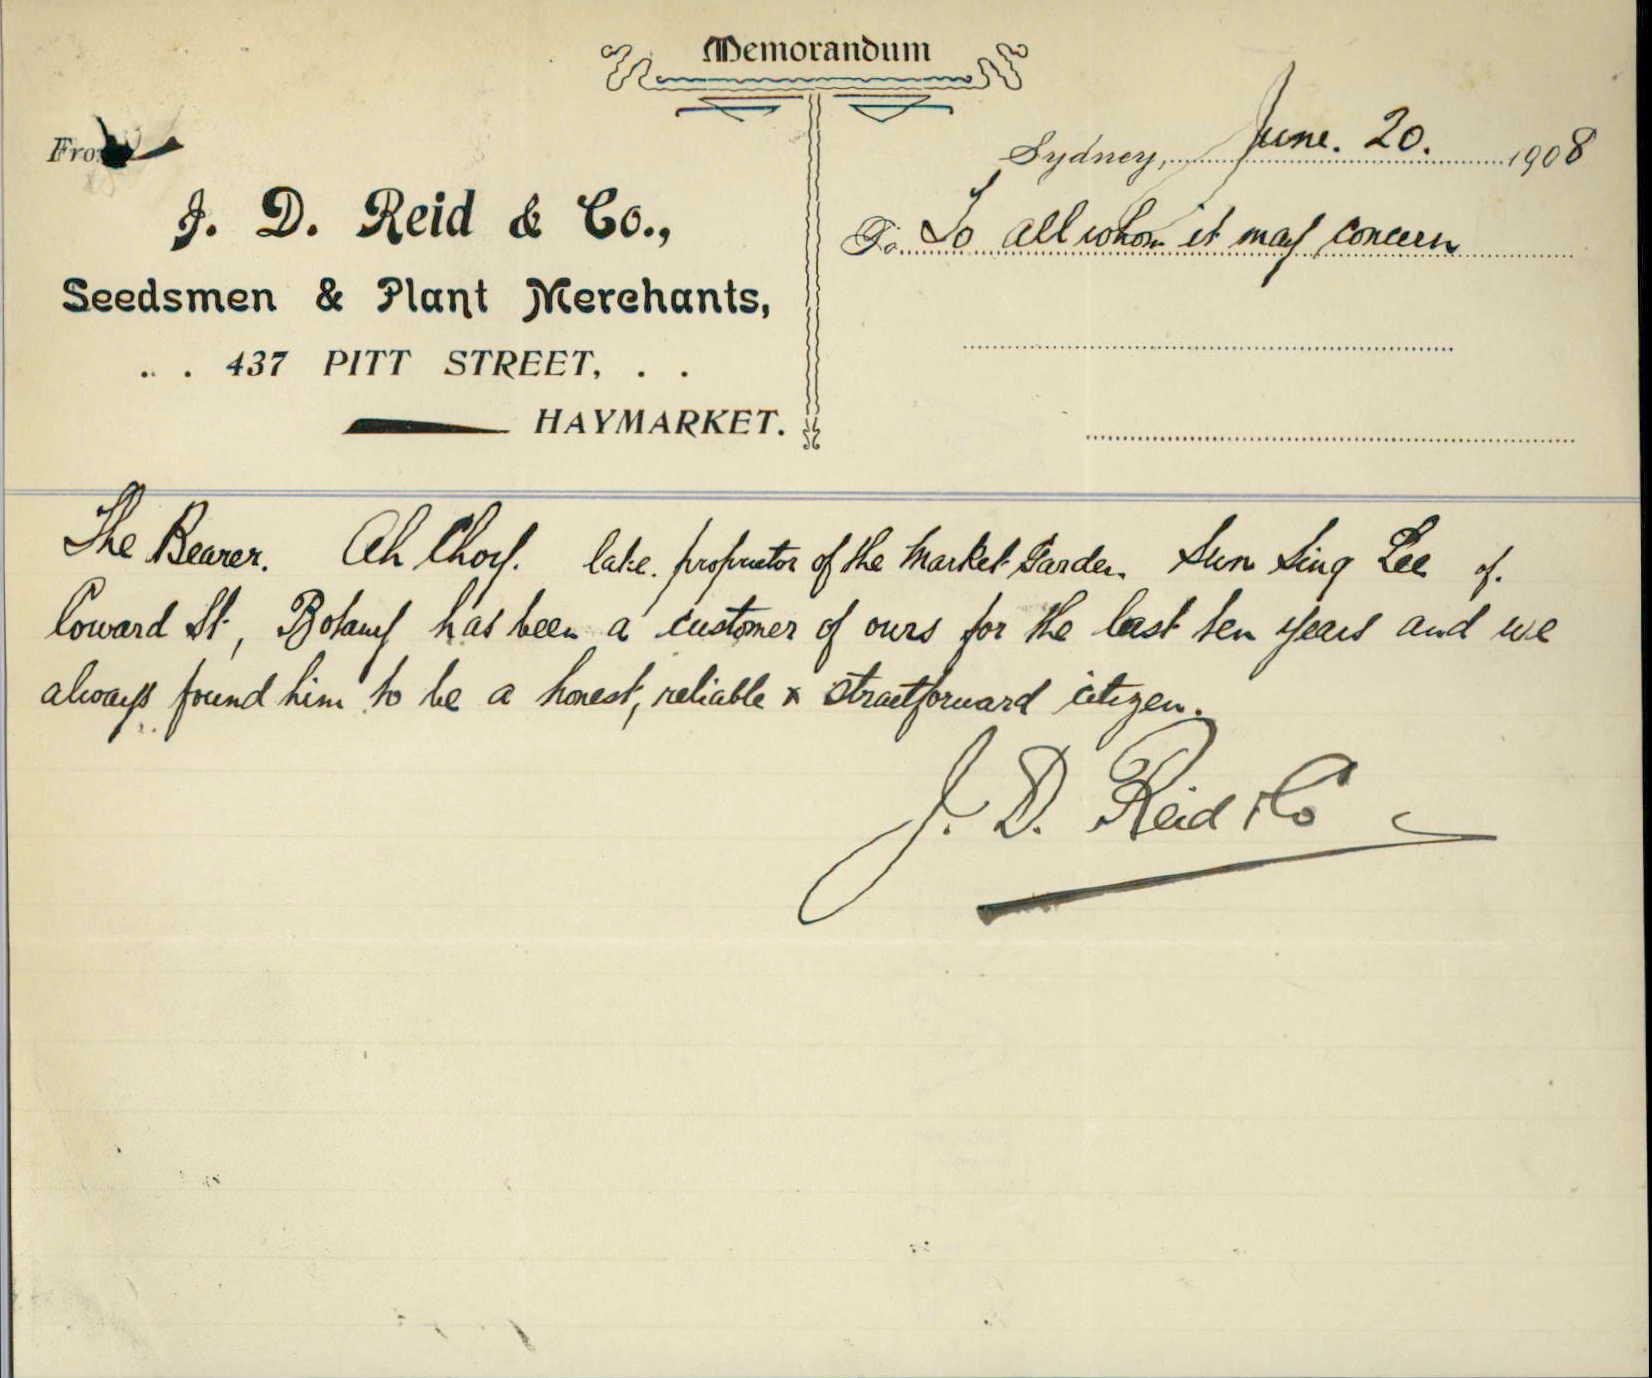 Memorandum
From
J. D. Reid & Co.,
Seedsmen & Plant Merchants,
. . 437 PITT STREET, . .
HAYMARKET.
Sydney, June. 20. 1908
To To all whom it may concern
The Bearer. Ah Choy. late. proprietor of the Market Garden Sun Sing Lee of.
Coward St, Botany has been a customer of ours for the last ten years and we
always found him to be a honest, reliable & straetforward citizen.
J. D. Reid & Co